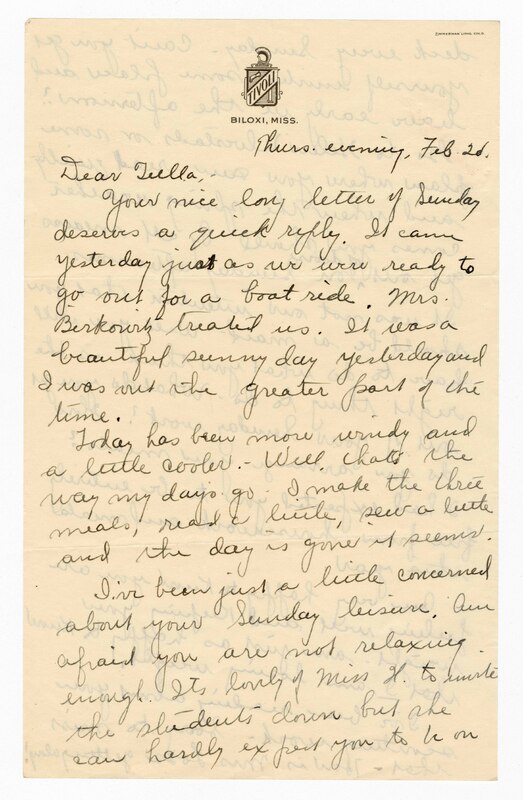 TIVOLI
BILOXI, MISS.
Thurs. evening, Feb. 20.
Dear Tulla,-
Your nice long letter of Sunday
deserves a quick reply. It came
yesterday just as we were ready to
go out for a boat ride. Mrs.
Berkowitz treated us. It was a
beautiful sunny day yesterday and
I was out the greater part of the
time.
Today has been more windy and
a little cooler.- Well thats the
way my days go. I make the three
meals, read a little, sew a little
and the day is gone it seems.
I've been just a little concerned
about your Sunday leisure. Am
afraid you are not relaxing
enough. Its lovely of Miss H. to invite
the students down but she
can hardly expect you to be on